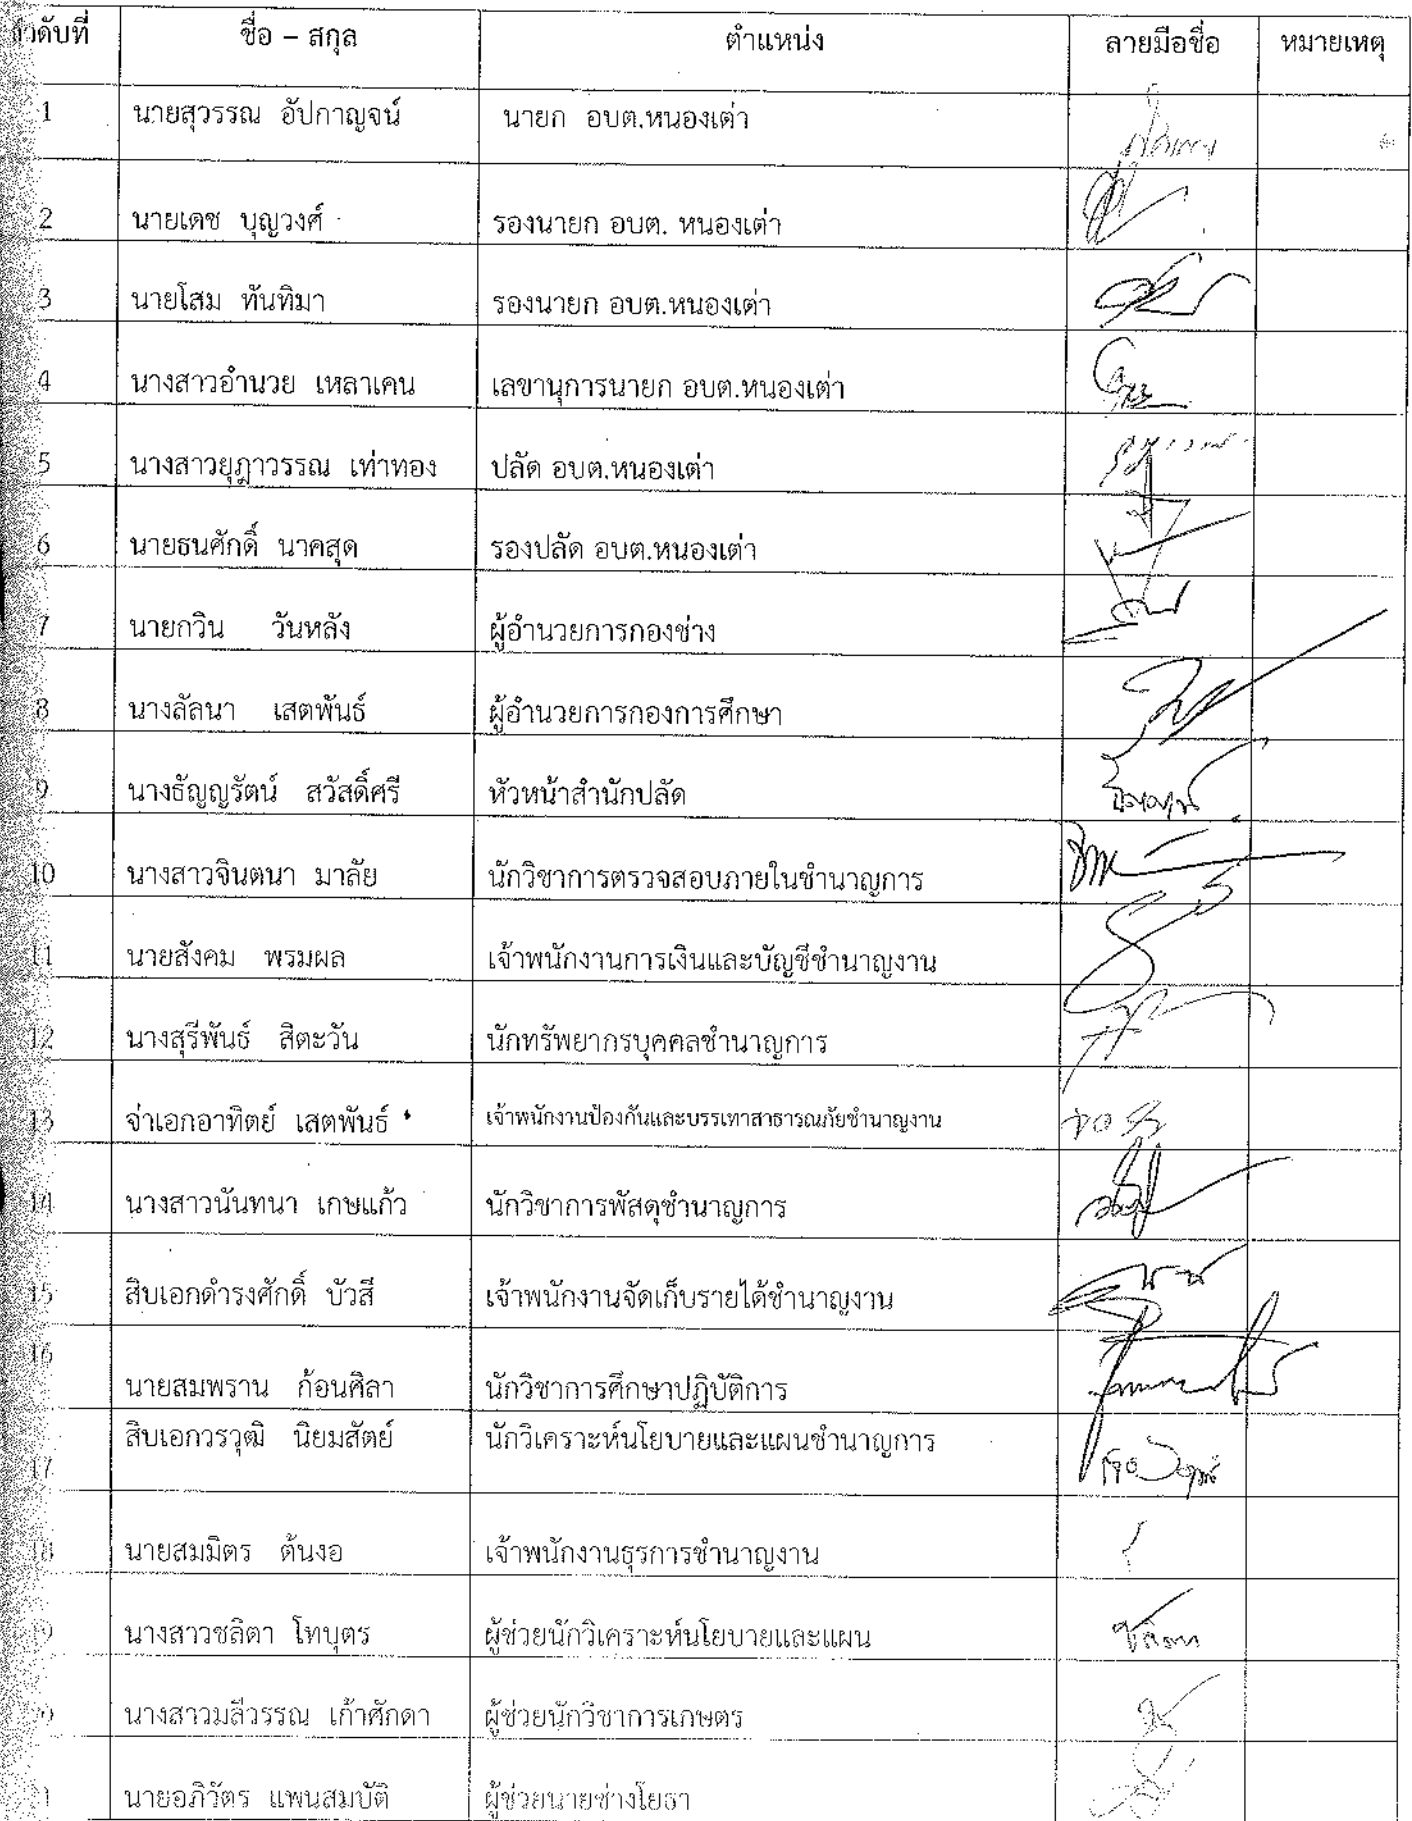 ลำดับที่ ชื่อ – สกุล ตำแหน่ง ลายมือชื่อ หมายเหตุ
1 นายสุวรรณ อัปกาญจน์ นายก อบต.หนองเต่า
2 นายเดช บุญวงศ์ รองนายก อบต. หนองเต่า
3 นายโสม ทันทิมา รองนายก อบต.หนองเต่า
4 นางสาวอำนวย เหลาเคน เลขานุการนายก อบต.หนองเต่า
5 นางสาวยุฎาวรรณ เท่าทอง ปลัด อบต.หนองเต่า
6 นายธนศักดิ์ นาคสุด รองปลัด อบต.หนองเต่า
7 นายกวิน วันหลัง ผู้อำนวยการกองช่าง
8 นางลัลนา เสตพันธ์ ผู้อำนวยการกองการศึกษา
9 นางธัญญรัตน์ สวัสดิ์ศรี หัวหน้าสำนักปลัด
10 นางสาวจินตนา มาลัย นักวิชาการตรวจสอบภายในชำนาญการ
11 นายสังคม พรมผล เจ้าพนักงานการเงินและบัญชีชำนาญงาน
12 นางสุรีพันธ์ สิตะวัน นักทรัพยากรบุคคลชำนาญการ
13 จ่าเอกอาทิตย์ เสตพันธ์ เจ้าพนักงานป้องกันและบรรเทาสาธารณภัยชำนาญงาน
14 นางสาวนันทนา เกษแก้ว นักวิชาการพัสดุชำนาญการ
15 สิบเอกดำรงศักดิ์ บัวสี เจ้าพนักงานจัดเก็บรายได้ชำนาญงาน
16 นายสมพราน ก้อนศิลา นักวิชาการศึกษาปฏิบัติการ
17 สิบเอกวรวุฒิ นิยมสัตย์ นักวิเคราะห์นโยบายและแผนชำนาญการ
18 นายสมมิตร ต้นงอ เจ้าพนักงานธุรการชำนาญงาน
19 นางสาวชลิตา โทบุตร ผู้ช่วยนักวิเคราะห์นโยบายและแผน ชลิตา
นางสาวมลีวรรณ เก้าศักดา ผู้ช่วยนักวิชาการเกษตร
นายอภิวัตร แพนสมบัติ ผู้ช่วยนายช่างโยธา